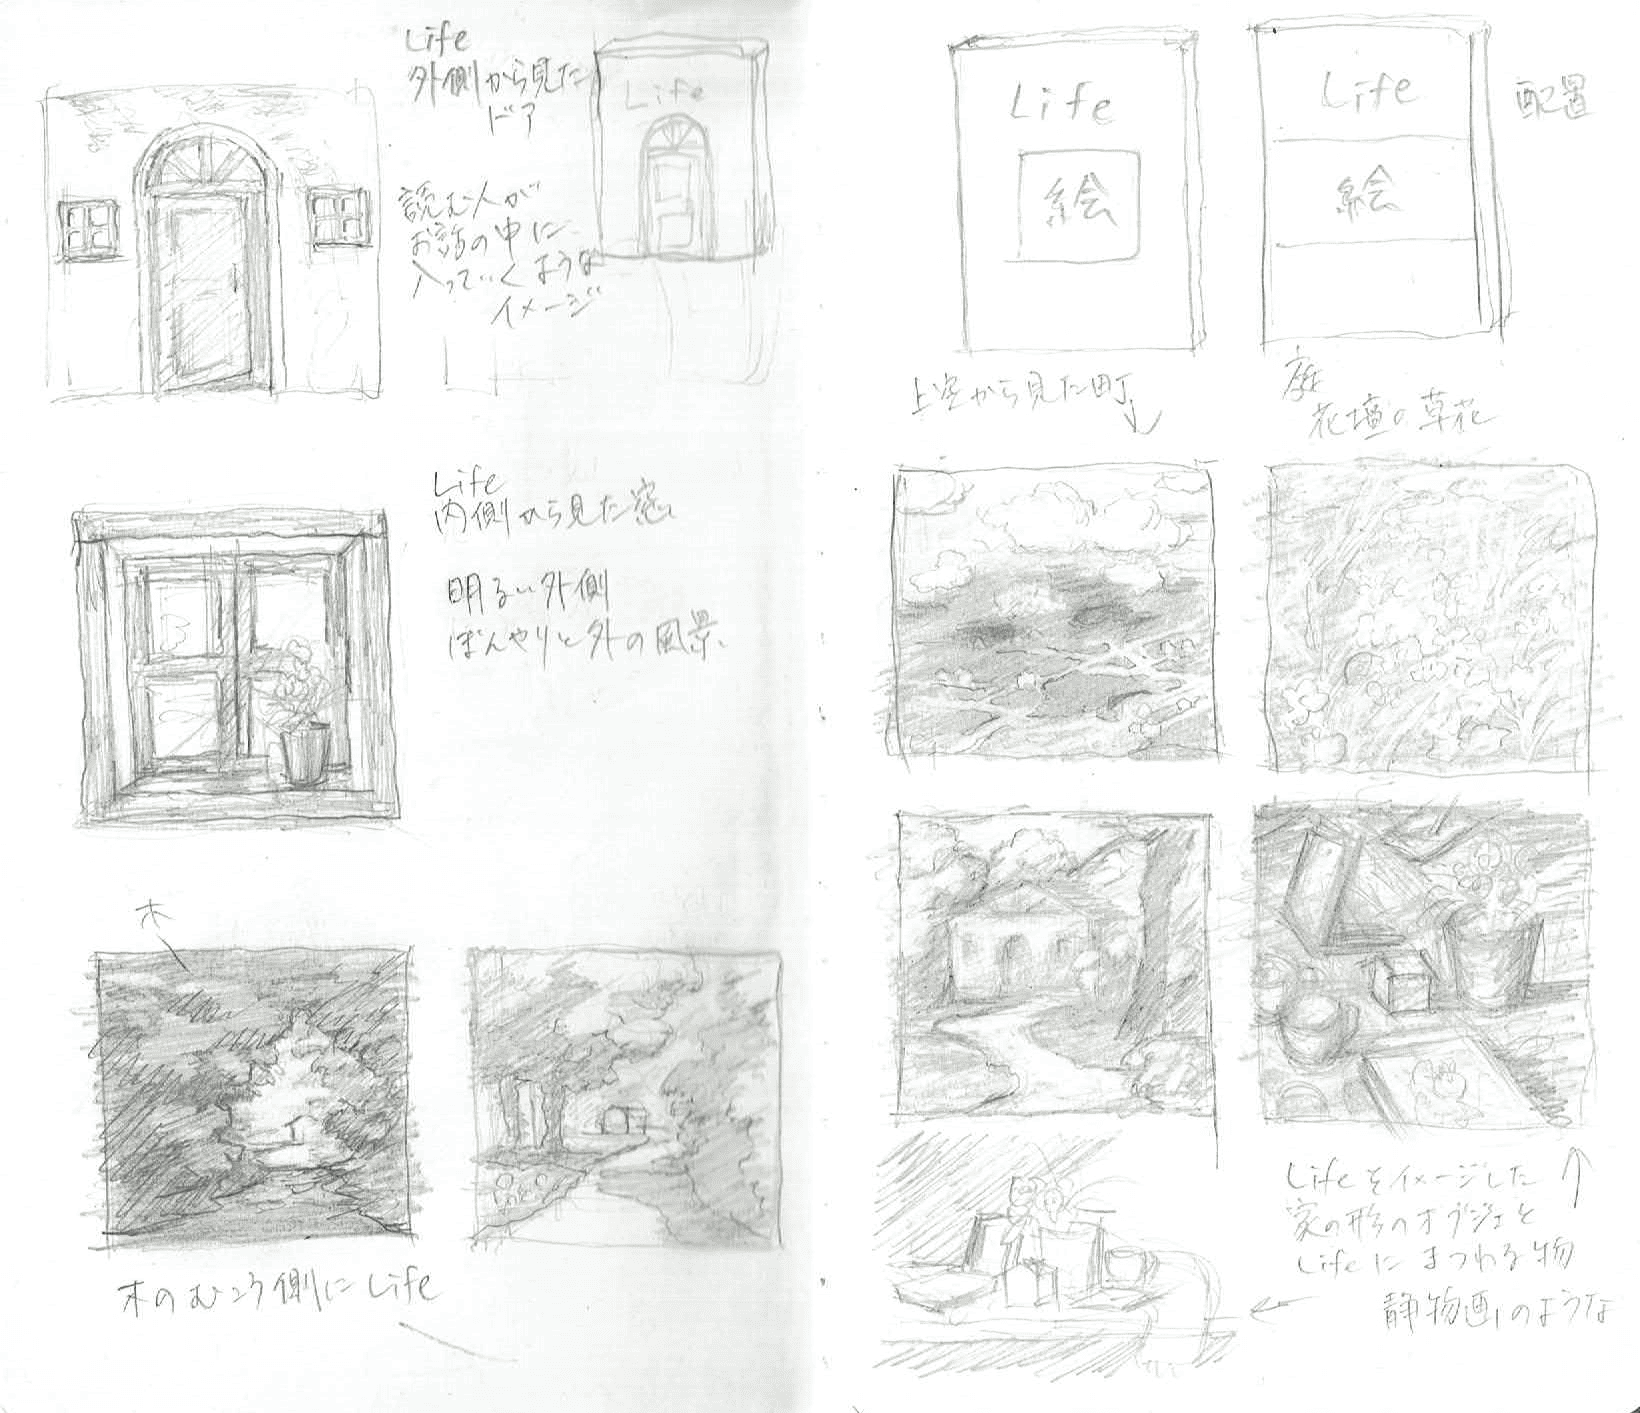 Life
外側から見た
ドア
Life
読む人が
お話の中に
入っていくような
イメージ
Life
内側から見た窓
明るい外側
ぼんやりと外の風景、
木
木のむこう側にLife
Life
絵
Life
絵
配置
上空から見た町
庭
花壇の草花
Lifeをイメージした
家の形のオブジェと
Lifeにまつわる物
静物画のような